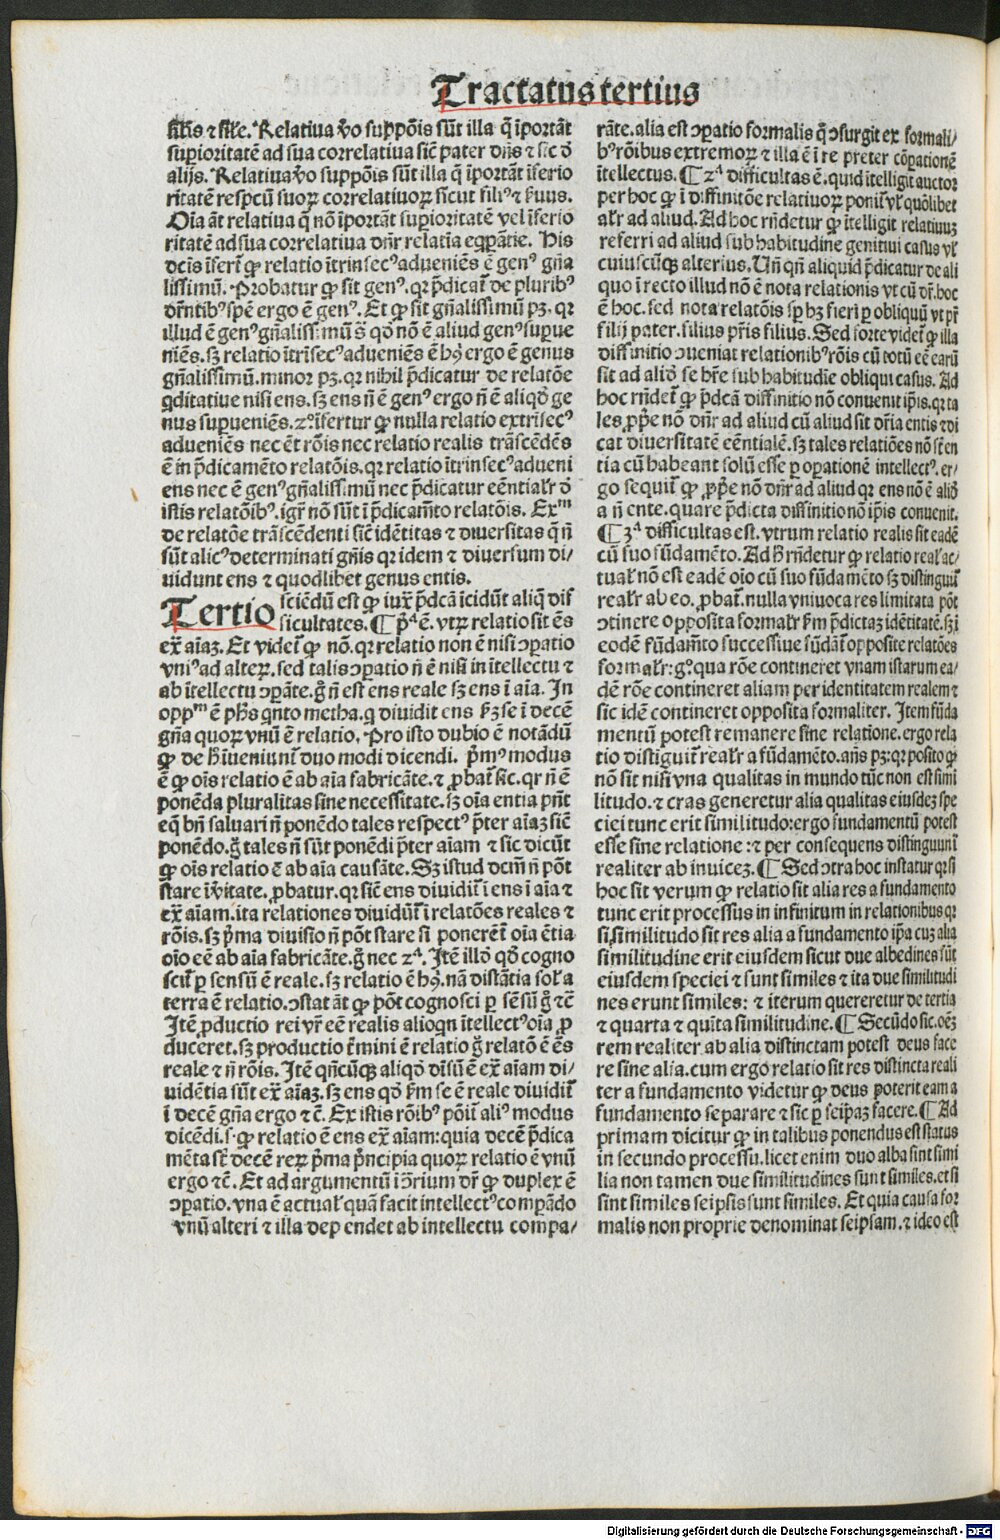 Tractatus tertius
siĺis ⁊ siĺe. Relatiua v̄o suppōis sūt illa q̄ īportāt
superioritatē ad sua correlatiua sic̄ pater dn̄s ⁊ sic d̄
alijs. Relatiua v̄o suppōis sūt illa q̄ īportāt īferio
ritatē respcū suoꝝ correlatiuoꝝ sicut filiꝰ ⁊ ẜuus.
Oīa āt relatiua q̄ nō īportāt superioritatē vel īferio
ritatē ad sua correlatiua dn̄r relatīa eq̄parātie. His
dc̄is īferī ꝙ relatio ītrinsecꝰ adueniēs ē genꝰ gn̄a
lissimū. Probatur ꝙ sit genꝰ. qꝛ p̄dicat̄ de pluribꝰ
dr̄ntibꝰ spē ergo ē genꝰ. Et ꝙ sit gn̄alissimū pꝫ. qꝛ
illud ē genꝰ gn̄alissimū s̄ qd̄ nō ē aliud genꝰ supue
niēs. sꝫ relatio ītrīsecꝰ adueniēs ē hꝰ ergo ē genus
gn̄alissimū. minor pꝫ. qꝛ nihil p̄dicatur de relatōe
qdditatiue nisi ens. sꝫ ens n̄ ē genꝰ ergo n̄ ē aliqd̄ ge
nus supueniēs. ⁊ꝰ īfertur ꝙ nulla relatio extrīsecꝰ
adueniēs nec ēt rōis nec relatio realis trāscēdēs
ē in p̄dicamēto relatōis. qꝛ relatio ītrinsecꝰ adueni
ens nec ē genꝰ gn̄alissimū nec p̄dicatur eēntialr̄ d̄
istis relatōibꝰ. igr̄ nō sūt ī p̄dicam̄to relatōis. Exᵐ
de relatōe trāscēdenti sic̄ idētitas ⁊ diuersitas q̄ n̄
sūt alicꝰ determinati gn̄is qꝛ idem ⁊ diuersum di/
uidunt ens ⁊ quodlibet genus entis.
Tertio sciēdū est ꝙ iux̄ p̄dcā īcidūt aliq̄ dif
ficultates. ¶ Pᵃ ē. vtꝝ relatio sit ēs
ex̄ aīaꝫ. Et videt̄ ꝙ nō. qꝛ relatio non ē nisi ↄpatio
vniꝰ ad alterꝝ. sed talis ↄpatio n̄ ē nisi in ītellectu ⁊
ab ītellectu ↄparāte. g̊ n̄ est ens reale sꝫ ens ī aīa. In
oppᵐ ē ph̄s qnto metha. q diuidit ens ẜm se ī decē
gn̄a quoꝝ vnū ē relatio. Pro isto dubio ē notādū
ꝙ de h̄ īueniunt̄ duo modi dicendi. p̄mꝰ modus
ē ꝙ oīs relatio ē ab aīa fabricāte. ⁊ ꝓbat̄ sic. qꝛ n̄ ē
ponēda pluralitas sine necessitate. sꝫ oīa entia pn̄t
eq̄ bn̄ saluari n̄ ponēdo tales respectꝰ p̄ter aīaꝫ sic̄
ponēdo. g̊ tales n̄ sūt ponēdi p̄ter aīam ⁊ sic dicūt
ꝙ oīs relatio ē ab aīa causāte. Sꝫ istud dcm̄ n̄ pōt
stare īv̄itate. ꝓbatur. qꝛ sic̄ ens diuidit̄ ī ens ī aīa ⁊
ex̄ aīam. ita relationes diuidūt̄ ī relatōes reales ⁊
rōis. sꝫ p̄ma diuisio n̄ pōt stare si ponerēt̄ oīa ētia
oīo eē ab aīa fabricāte. g̊ nec ⁊ᵃ. Itē illd̄ qd̄ cogno
scit̄ ꝑ sensū ē reale. sꝫ relatio ē hꝰ. nā distātia sol̄ a
terra ē relatio. ↄstat āt ꝙ pōt cognosci ꝑ sēsū g̊ ⁊c̄
Itē ꝓductio rei vr̄ eē realis alioqn̄ ītellectꝰ oīa ꝓ
duceret. sꝫ productio t̄mini ē relatio g̊ relatō ē ēs
reale ⁊ n̄ rōis. Itē qn̄cūqꝫ aliqd̄ diuisū ē ex̄ aīam di/
uidētia sūt ex̄ aīaꝫ. sꝫ ens qd̄ ẜm se ē reale diuidit̄
ī decē gn̄a ergo ⁊c̄. Ex istis rōibꝰ pōit̄ aliꝰ modus
dicēdi. s. ꝙ relatio ē ens ex̄ aīam: quia decē p̄dica
mēta st̄ decē reꝝ p̄ma p̄ncipia quoꝝ relatio ē vnū
ergo ⁊c̄. Et ad argumentū ī ↄ̄rium dr̄ ꝙ duplex ē
ↄpatio. vna ē actual̄ quā facit intellectꝰ compādo
vnū alteri ⁊ illa dependet ab intellectu compa/
rāte. alia est ↄpatio formalis q̄ ↄsurgit ex formali/
bꝰ rōibus extremoꝝ ⁊ illa ē ī re preter cōpationē
ītellectus. ¶ ⁊ᵃ difficultas ē. quid ītelligit auctor
per hoc ꝙ ī diffinitōe relatiuoꝝ ponit̄ vl̄ quōlibet
alr̄ ad aliud. Ad hoc rn̄detur ꝙ ītelligit relatiuuꝫ
referri ad aliud sub habitudine genitiui casus vl̄
cuiuscūqꝫ alterius. Un̄ qn̄ aliquid p̄dicatur de ali
quo ī recto illud nō ē nota relationis vt cū dr̄. hoc
ē hoc. sed nota relatōis sp̄ hꝫ fieri p obliquū vt pr̄
filij pater. filius pr̄is filius. Sed forte videt̄ ꝙ illa
diffinitio ↄueniat relationibꝰ rōis cū totū eē earū
sit ad aliqd̄ se hr̄e sub habitudīe obliqui casus. Ad
hoc rn̄det̄ ꝙ p̄dcā diffinitio nō conuenit ip̄is. qꝛ ta
les ꝓpe nō dn̄r ad aliud cū aliud sit dr̄ia entis ⁊ di
cat diuersitatē eēntialē. sꝫ tales relatiōes nō st̄ en
tia cū habeant solū esse p opationē intellectꝰ. er/
go sequit̄ ꝙ ꝓpe nō dn̄r ad aliud qꝛ ens nō ē aliqd̄
a n̄ ente. quare p̄dicta diffinitio nō ip̄is conuenit.
¶ 3ᵃ difficultas est. vtrum relatio realis sit eadē
cū suo fūdamēto. Ad h̄ rn̄detur ꝙ relatio real̄ ac/
tual̄ nō est eadē oīo cū suo fūdamēto sꝫ distinguit̄
realr̄ ab eo. ꝓbat̄. nulla vniuoca res limitata pōt
ↄtinere opposita formalr̄ ẜm p̄dictaꝫ idētitatē. sꝫ ī
eodē fūdam̄to successiue fūdāt̄ opposite relatōes
formalr̄: g̊. qua rōe contineret vnam istarum ea/
dē rōe contineret aliam per identitatem realem ⁊
sic idē contineret opposita formaliter. Item fūda
mentū potest remanere sine relatione. ergo rela
tio distiguit̄ realr̄ a fūdamēto. an̄s pꝫ: qꝛ posito ꝙ
nō sit nisi vna qualitas in mundo tūc non est simi
litudo. ⁊ cras generetur alia qualitas eiusdeꝫ spe
ciei tunc erit similitudo: ergo fundamentū potest
esse sine relatione: ⁊ per consequens distinguunt̄
realiter ab inuiceꝫ. ¶ Sed ↄtra hoc instatur qꝛ si
hoc sit verum ꝙ relatio sit alia res a fundamento
tunc erit processus in infinitum in relationibus qꝛ
si similitudo sit res alia a fundamento ip̄a cuꝫ alia
similitudine erit eiusdem sicut due albedines sūt
eiusdem speciei ⁊ sunt similes ⁊ ita due similitudi
nes erunt similes: ⁊ iterum quereretur de tertia
⁊ quarta ⁊ quīta similitudine. ¶ Secūdo sic. oēꝫ
rem realiter ab alia distinctam potest deus face
re sine alia. cum ergo relatio sit res distincta reali
ter a fundamento videtur ꝙ deus poterit eam a
fundamento separare ⁊ sic ꝑ seipaꝫ facere. ¶ Ad
primam dicitur ꝙ in talibus ponendus est status
in secundo processu. licet enim duo alba sint simi
lia non tamen due similitudines sunt similes. et si
sint similes seipsis sunt similes. Et quia causa for
malis non proprie denominat seipsam. ⁊ ideo est
Digitalisierung gefördert durch die Deutsche Forschungsgemeinschaft - DFG